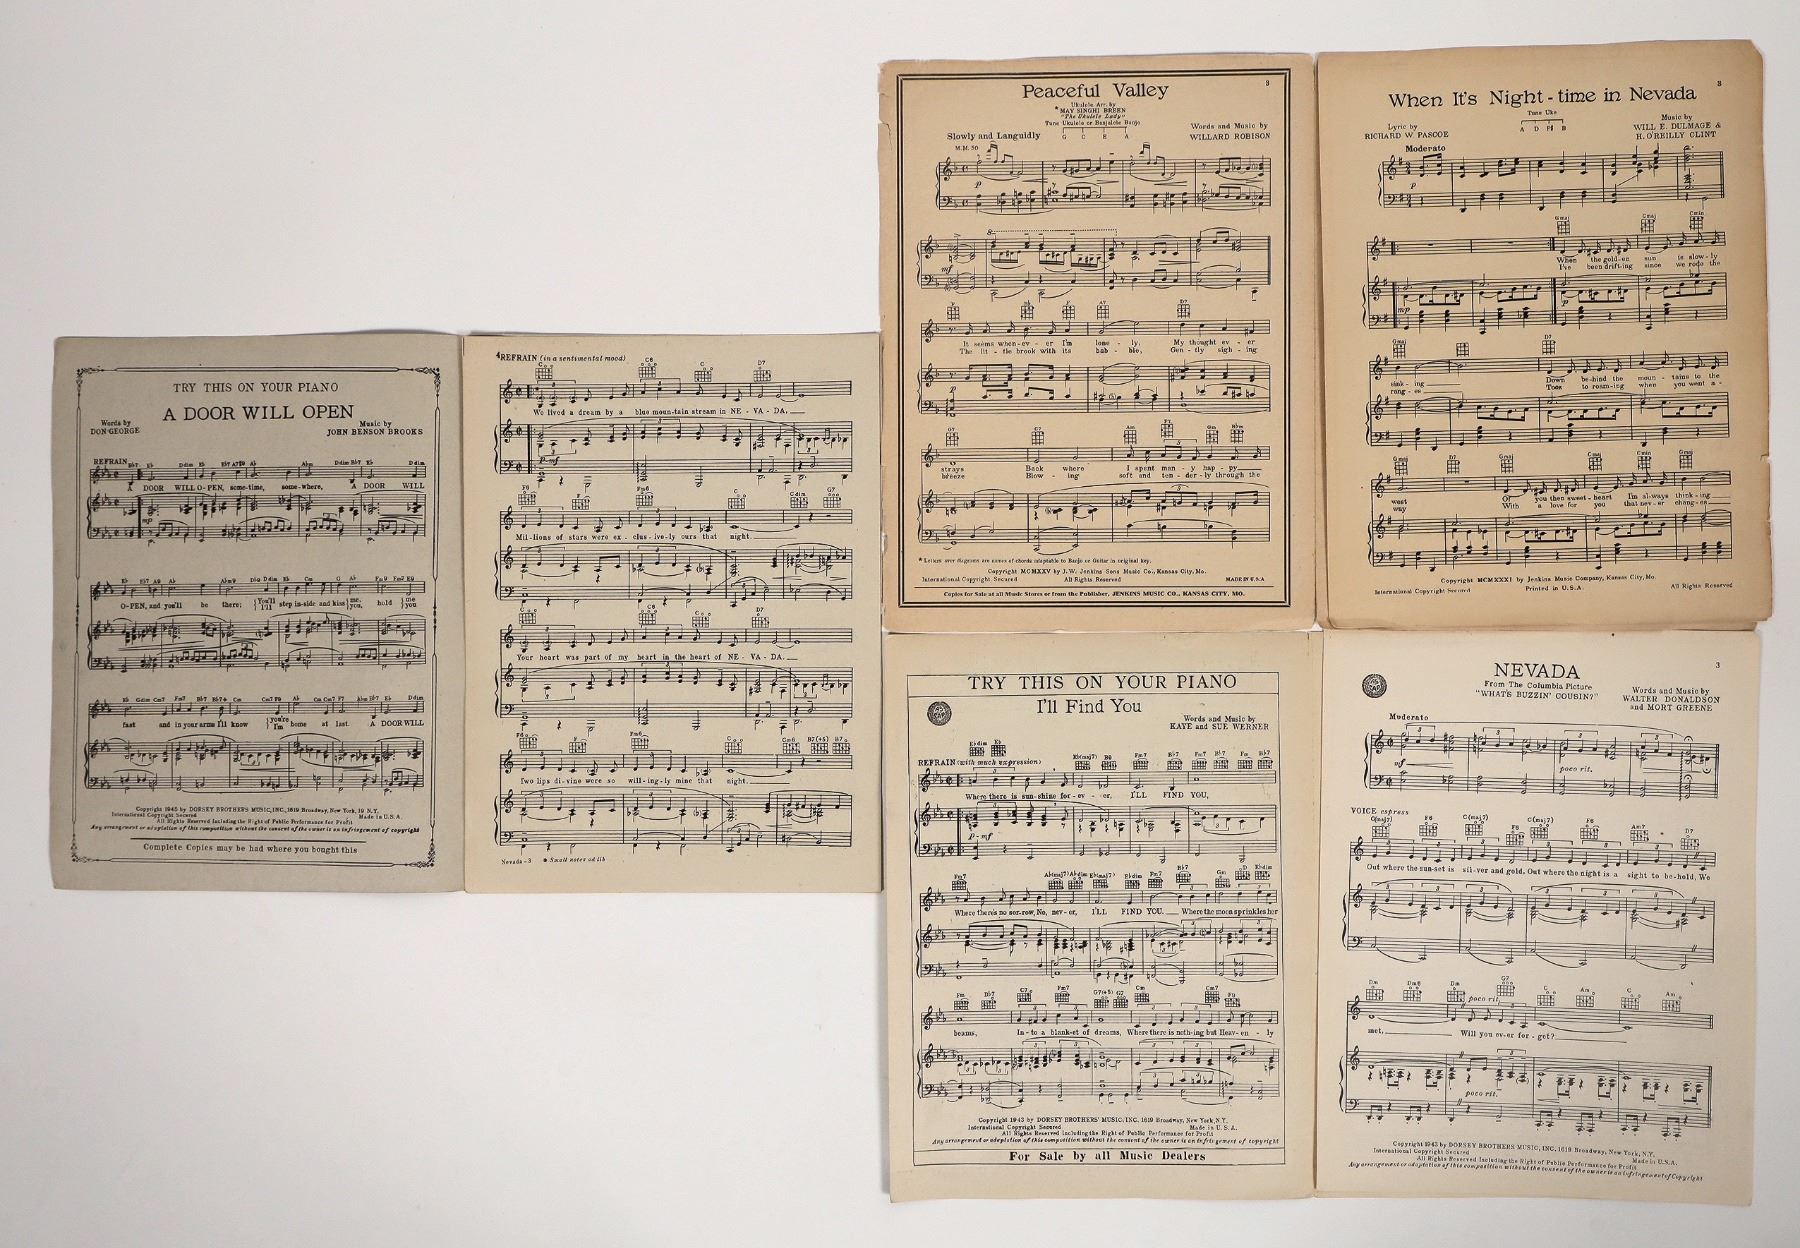 TRY THIS ON YOUR PIANO
A DOOR WILL OPEN
Words by
DON GEORGE
Music by
JOHN BENSON BROOKS
REFRAIN
A DOOR WILL O-PEN, some-time, some-where, A DOOR WILL
O-PEN, and you'll be there; {You'll I'll} step in-side and kiss {me, you,} hold {me you}
fast and in your arms I'll know {you're I'm} home at last. A DOOR WILL
Copyright 1945 by DORSEY BROTHERS MUSIC, INC. 1619 Broadway, New York, 19 N.Y.
International Copyright Secured Made in U.S.A.
All Rights Reserved Including the Right of Public Performance for Profit
Any arrangement or adaptation of this composition without the consent of the owner is an infringement of copyright
Complete Copies may be had where you bought this
4
REFRAIN (in a sentimental mood)
C C6 C D7
We lived a dream by a blue moun-tain stream in NE - VA - DA.
p-mf
Mil-lions of stars were ex - clus-ive-ly ours that night.
Your heart was part of my heart in the heart of NE - VA - DA.
Two lips di-vine were so will-ing-ly mine that night.
Nevada - 3 * Small notes ad lib
Peaceful Valley
3
Ukulele Arr. by
*MAY SINGHI BREEN
"The Ukulele Lady"
Tune Ukulele or Banjulele Banjo
G C E A
Slowly and Languidly
M.M. 50
Words and Music by
WILLARD ROBISON
p
mf
It seems when-ev - er I'm lone - ly, My thought ev - er
The lit - tle brook with its bab - ble, Gen - tly sigh - ing
strays Back where I spent man - y hap - py
breeze Blow - ing soft and ten - der - ly through the
* Letters over diagrams are names of chords adaptable to Banjo or Guitar in original key.
Copyright MCMXXV by J.W. Jenkins Sons Music Co., Kansas City, Mo.
International Copyright Secured All Rights Reserved MADE IN U.S.A
Copies for Sale at all Music Stores or from the Publisher, JENKINS MUSIC CO., KANSAS CITY, MO.
When It's Night-time in Nevada
3
Tune Uke
A D F# B
Lyric by
RICHARD W. PASCOE
Music by
WILL E. DULMAGE &
H. O'REILLY CLINT
Moderato
p
When the gold-en sun is slow-ly
I've been drift-ing since we rode the
mp
sink - ing Down be-hind the moun - tains to the
rang - es Took to roam-ing when you went a -
west Of you then sweet - heart I'm al-ways think - ing
way With a love for you that nev - er chang - es
Copyright MCMXXXI by Jenkins Music Company, Kansas City, Mo.
International Copyright Secured Printed in U.S.A. All Rights Reserved
TRY THIS ON YOUR PIANO
I'll Find You
Words and Music by
KAYE and SUE WERNER
REFRAIN (with much expression)
Where there is sun-shine for-ev - er, I'LL FIND YOU,
p-mf
Where there's no sor-row, No, nev-er, I'LL FIND YOU. Where the moon sprinkles her
beams, In-to a blank-et of dreams, Where there is noth-ing but Heav-en - ly
Copyright 1943 by DORSEY BROTHERS' MUSIC, INC. 1619 Broadway, New York, N.Y.
International Copyright Secured Made in U.S.A.
All Rights Reserved Including the Right of Public Performance for Profit
Any arrangement or adaptation of this composition without the consent of the owner is an infringement of copyright
For Sale by all Music Dealers
NEVADA
3
From The Columbia Picture
"WHAT'S BUZZIN' COUSIN?"
Words and Music by
WALTER DONALDSON
and MORT GREENE
Moderato
mf
poco rit.
VOICE espress
C(maj7) F6 C(maj7) F6 C(maj7) F6 Am7 D7
Out where the sun-set is sil-ver and gold, Out where the night is a sight to be-hold, We
Dm Dm6 Dm G7 C Am C Am
poco rit.
met, Will you ev-er for - get?
poco rit.
Copyright 1943 by DORSEY BROTHERS MUSIC, INC. 1619 Broadway, New York, N.Y.
International Copyright Secured Made in U.S.A.
All Rights Reserved Including the Right of Public Performance for Profit
Any arrangement or adaptation of this composition without the consent of the owner is an infringement of Copyright